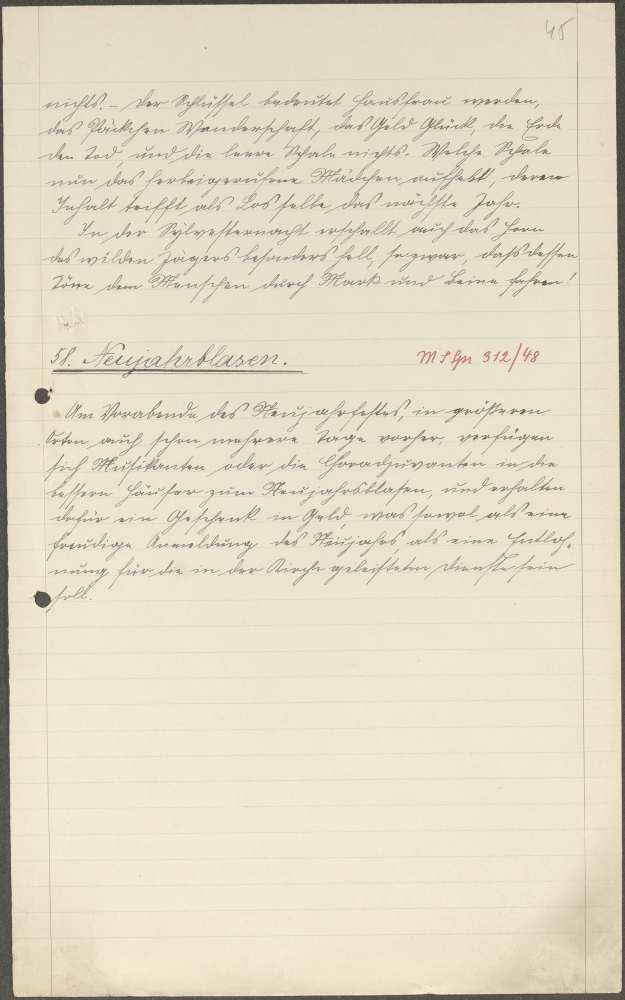 45
nichts. – Der Schlüssel bedeutet Hausfrau werden,
das Päckchen Wanderschaft, das Geld Glück, die Erde
den Tod, und die leere Schale nichts. Welche Schale
nun das herbeigerufene Mädchen aufhebt, deren
Inhalt trifft als Los selbe das nächste Jahr.
In der Sylvesternacht erschallt auch das Horn
des wilden Jägers besonders hell, so zwar, dass dessen
Töne dem Menschen durch Mark und Beine fahren!
58. Neujahrblasen.
312/48
Am Vorabende des Neujahrfestes, in größeren
Orten auch schon mehrere Tage vorher, verfügen
sich Musikanten oder die Choradjuvanten in die
bessern Häuser zum Neujahrsblasen, und erhalten
dafür ein Geschenk in Geld, was sowol als eine
freudige Anmeldung des Neujahrs, als eine Entloh-
nung für die in der Kirche geleisteten Dienste sein
soll.